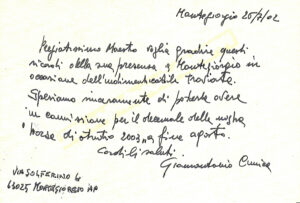 Montegiorgio 25/7/02
Pregiatissimo Maestro voglia gradire questi
ricordi della sua presenza a Montegiorgio in
occasione dell'indimenticabile Traviata.
Speriamo sinceramente di poterla avere
in commissione per il decennale della nostra
borsa di studio 2003 a fine agosto.
Cordiali saluti.
Giannantonio
VIA SOLFERINO 4
63025 MONTEGIORGIO AP